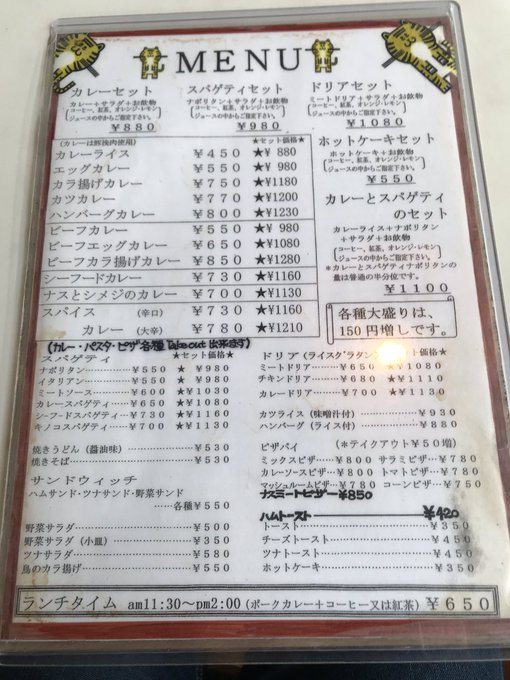 MENU
カレーセット
カレー+サラダ+お飲物
(コーヒー、紅茶、オレンジ・レモン
ジュースの中からご指定下さい。)
¥880
スパゲティセット
ナポリタン+サラダ+お飲物
(コーヒー、紅茶、オレンジ・レモン
ジュースの中からご指定下さい。)
¥980
ドリアセット
ミートドリア+サラダ+お飲物
(コーヒー、紅茶、オレンジ・レモン
ジュースの中からご指定下さい。)
¥1080
(カレーは豚挽肉使用) ★セット価格★
カレーライス ¥450 ★¥880
エッグカレー ¥550 ★¥980
カラ揚げカレー ¥750 ★¥1180
カツカレー ¥770 ★¥1200
ハンバーグカレー ¥800 ★¥1230
ビーフカレー ¥550 ★¥980
ビーフエッグカレー ¥650 ★¥1080
ビーフカラ揚げカレー ¥850 ★¥1280
シーフードカレー ¥730 ★¥1160
ナスとシメジのカレー ¥700 ★¥1130
スパイス (辛口) ¥730 ★¥1160
カレー (大辛) ¥780 ★¥1210
ホットケーキセット
ホットケーキ+お飲物
(コーヒー、紅茶、オレンジ・レモン
ジュースの中からご指定下さい。)
¥550
カレーとスパゲティ
のセット
カレーライス+ナポリタン
+サラダ+お飲物
(コーヒー、紅茶、オレンジ・レモン
ジュースの中からご指定下さい。)
*カレーとスパゲティナポリタンの
量は普通の半分位です。
¥1100
各種大盛りは、
150円増しです。
(カレー・パスタ・ピザ各種 Take out 出来ます)
スパゲティ ★セット価格★
ナポリタン ¥550 ★¥980
イタリアン ¥550 ★¥980
ミートソース ¥600 ★¥1030
カレースパゲティ ¥650 ★¥1080
シーフードスパゲティ ¥730 ★¥1160
キノコスパゲティ ¥700 ★¥1130
焼きうどん(醤油味) ¥530
焼きそば ¥530
サンドウィッチ
ハムサンド・ツナサンド・野菜サンド
各種¥550
野菜サラダ ¥500
野菜サラダ(小皿) ¥350
ツナサラダ ¥580
鳥のカラ揚げ ¥550
ドリア(ライスグラタン) セット価格★
ミートドリア ¥650 ¥1080
チキンドリア ¥680 ★¥1110
カレードリア ¥700 ★¥1130
カツライス(味噌汁付) ¥930
ハンバーグ(ライス付) ¥880
ピザパイ (*テイクアウト¥50増)
ミックスピザ ¥800 サラミピザ ¥780
カレーソースピザ ¥800 トマトピザ ¥780
マッシュルームピザ ¥780 コーンピザ ¥750
ナスミートピザー ¥850
ハムトースト ¥420
トースト ¥350
チーズトースト ¥450
ツナトースト ¥450
ホットケーキ ¥350
ランチタイム am11:30〜pm2:00 (ポークカレー+コーヒー又は紅茶) ¥650